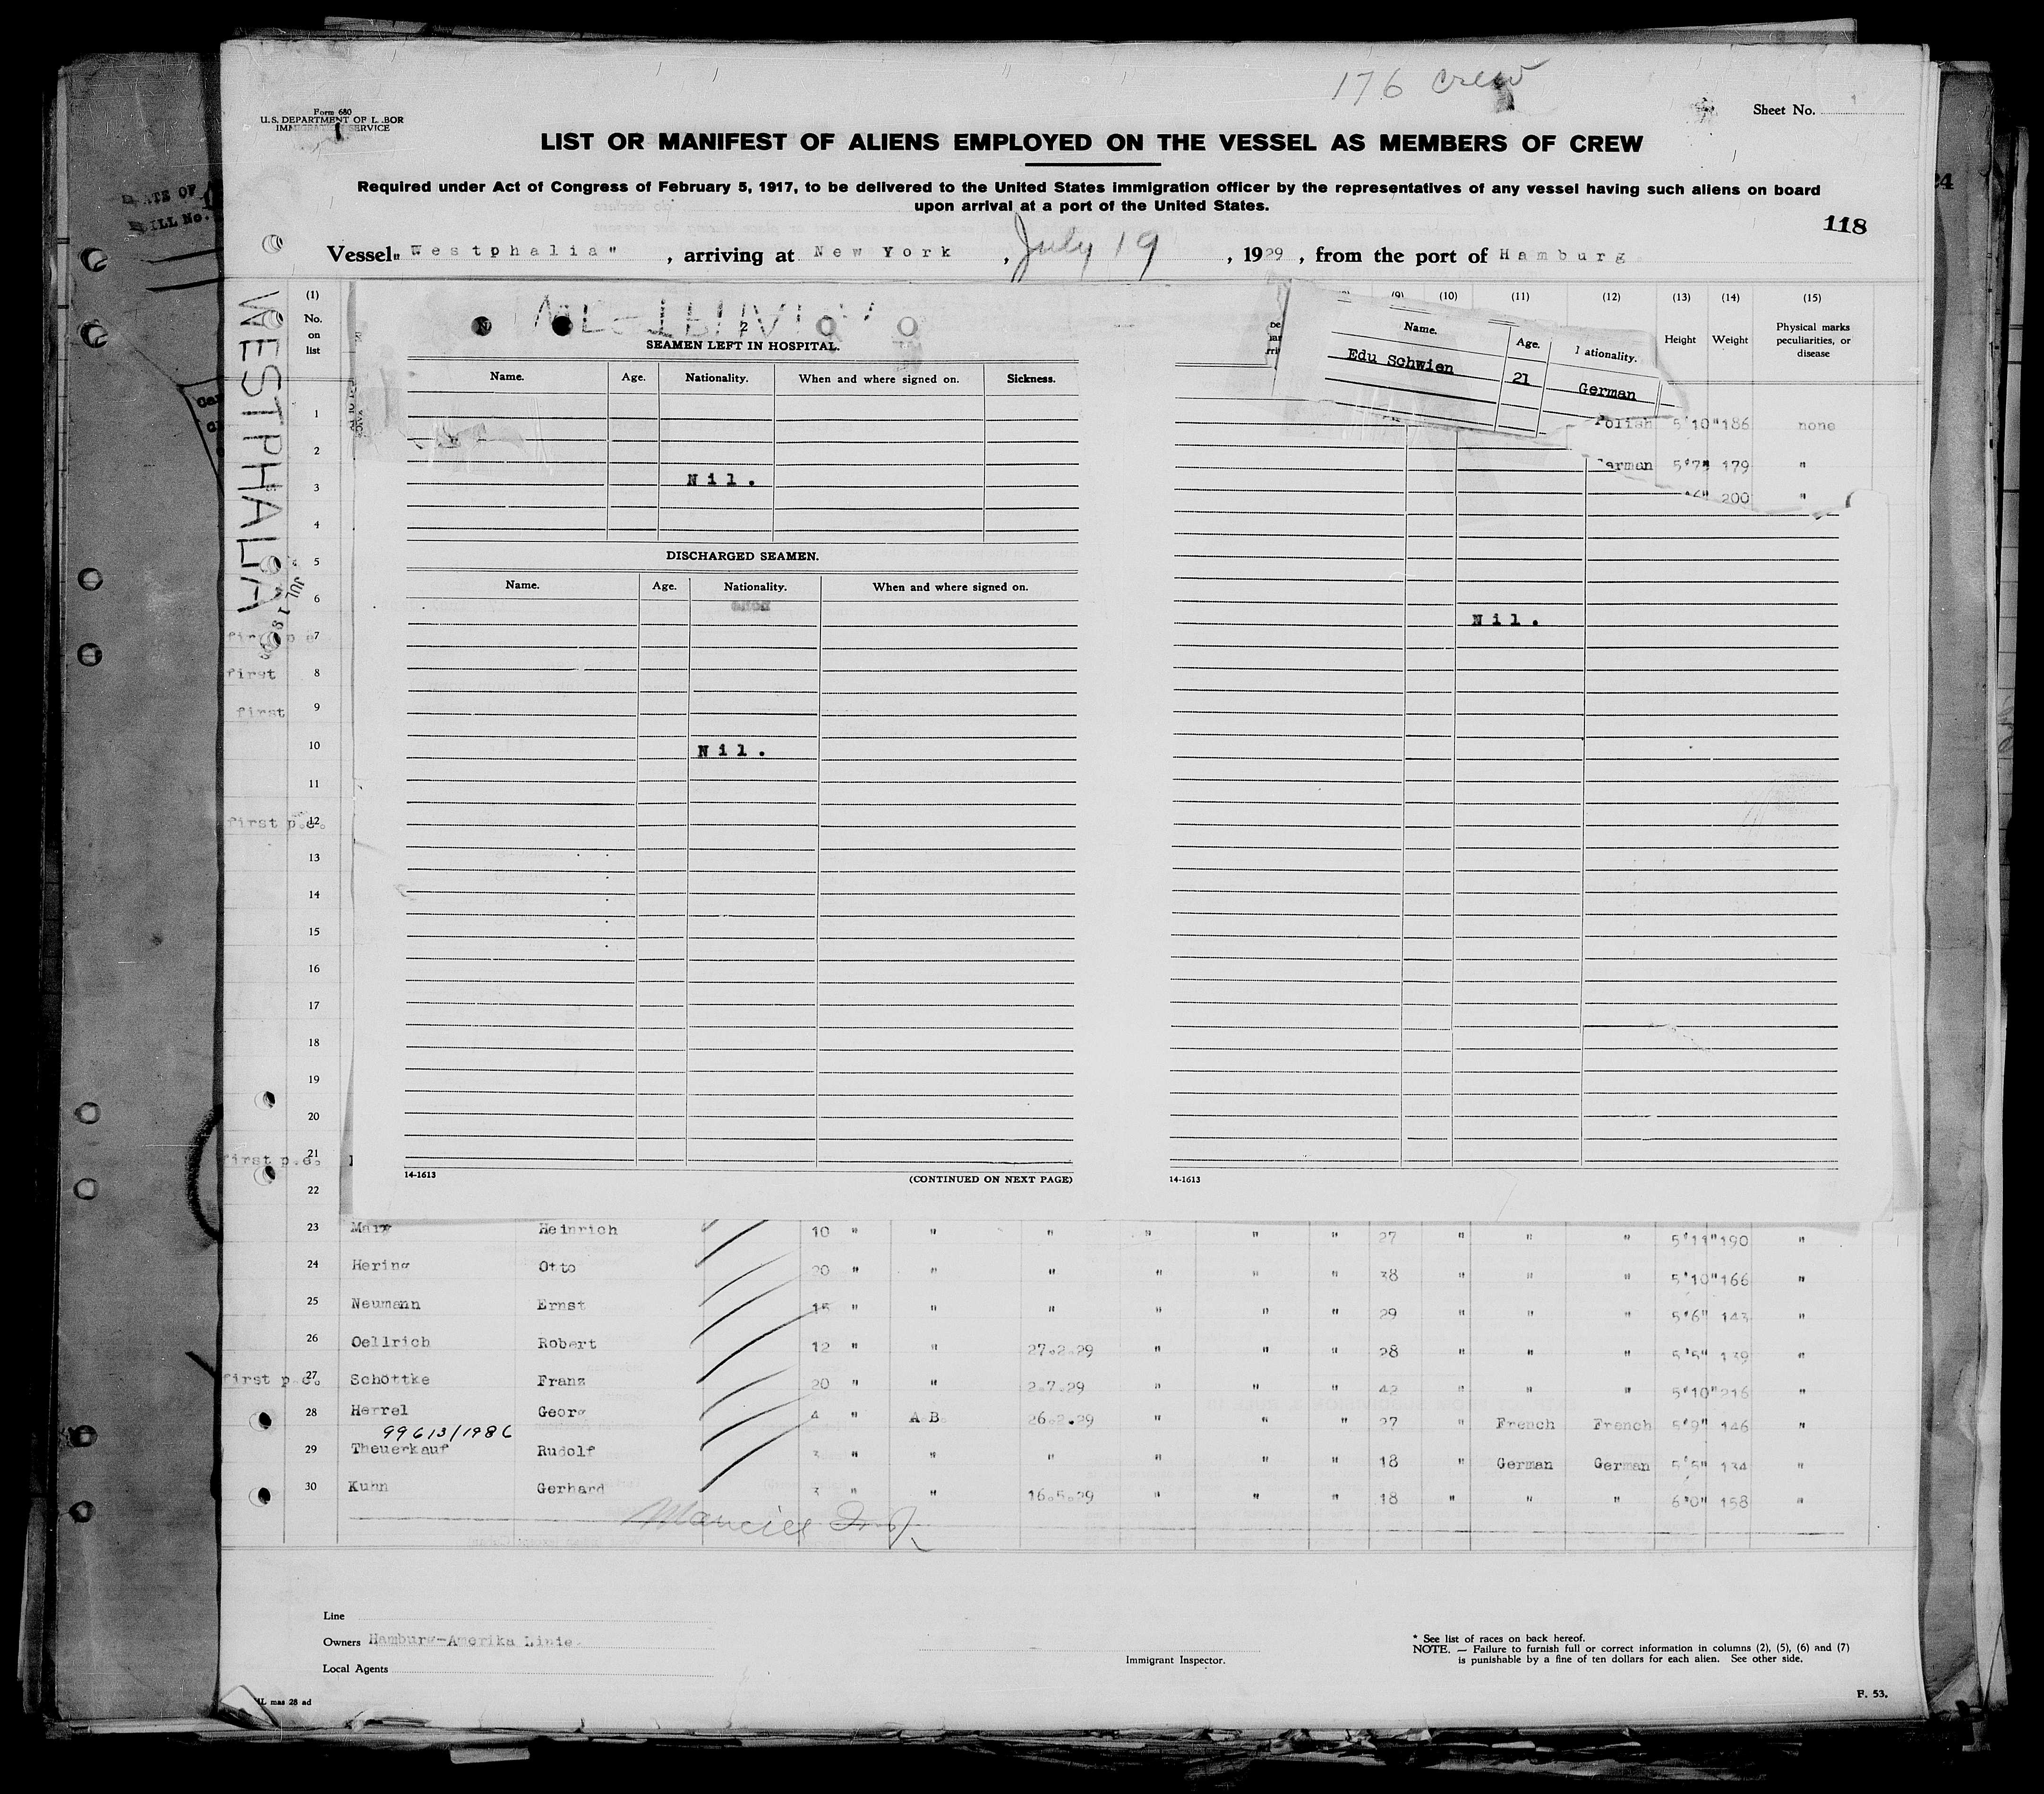 176 crew
Form 680
U.S. DEPARTMENT OF LABOR
IMMIGRATION SERVICE
Sheet No. 1
LIST OR MANIFEST OF ALIENS EMPLOYED ON THE VESSEL AS MEMBERS OF CREW
Required under Act of Congress of February 5, 1917, to be delivered to the United States immigration officer by the representatives of any vessel having such aliens on board
upon arrival at a port of the United States.
118
Vessel "Westphalia" , arriving at New York , July 19 , 1929 , from the port of Hamburg
WESTPHALIA
(1) No. on list
SEAMEN LEFT IN HOSPITAL.
Name. Age. Nationality. When and where signed on. Sickness.
Nil.
DISCHARGED SEAMEN.
Name. Age. Nationality. When and where signed on.
Nil.
14-1613 (CONTINUED ON NEXT PAGE)
Name. Age. ationality.
Edu Schwien 21 German
Nil.
14-1613
(9) (10) (11) (12) (13) (14) (15)
Height Weight Physical marks peculiarities, or disease
Polish 5'10" 186 none
German 5'7" 179 "
200 "
1
2
3
4
5
6
7
first 8
first 9
10
11
first p.e. 12
13
14
15
16
17
18
19
20
first p.e. 21
22
23 Marx Heinrich 10 " " " " " " 27 " " " 5'11" 190 "
24 Hering Otto 20 " " " " " " 38 " " " 5'10" 166 "
25 Neumann Ernst 15 " " " " " " 29 " " " 5'6" 143 "
26 Oellrich Robert 12 " " 27.2.29 " " " 28 " " " 5'5" 139 "
first p.e. 27 Schöttke Franz 20 " " 2.7.29 " " " 42 " " " 5'10" 216 "
28 Herrel Georg 4 " A B. 26.2.29 " " " 27 " French French 5'9" 146 "
99613/1986
29 Theuerkauf Rudolf 3 " " " " " " 18 " German German 5'5" 134 "
30 Kuhn Gerhard 3 " " 16.5.29 " " " 18 " " " 6'0" 158 "
Line
Owners Hamburg-Amerika Linie.
Local Agents
Immigrant Inspector.
* See list of races on back hereof.
NOTE. — Failure to furnish full or correct information in columns (2), (5), (6) and (7)
is punishable by a fine of ten dollars for each alien. See other side.
mas 28 ad
F. 53.